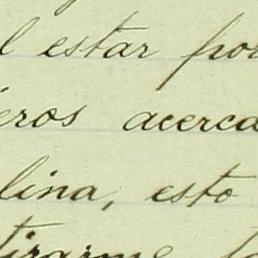 l estar por
ieros acerca
lina, esto
tirarme